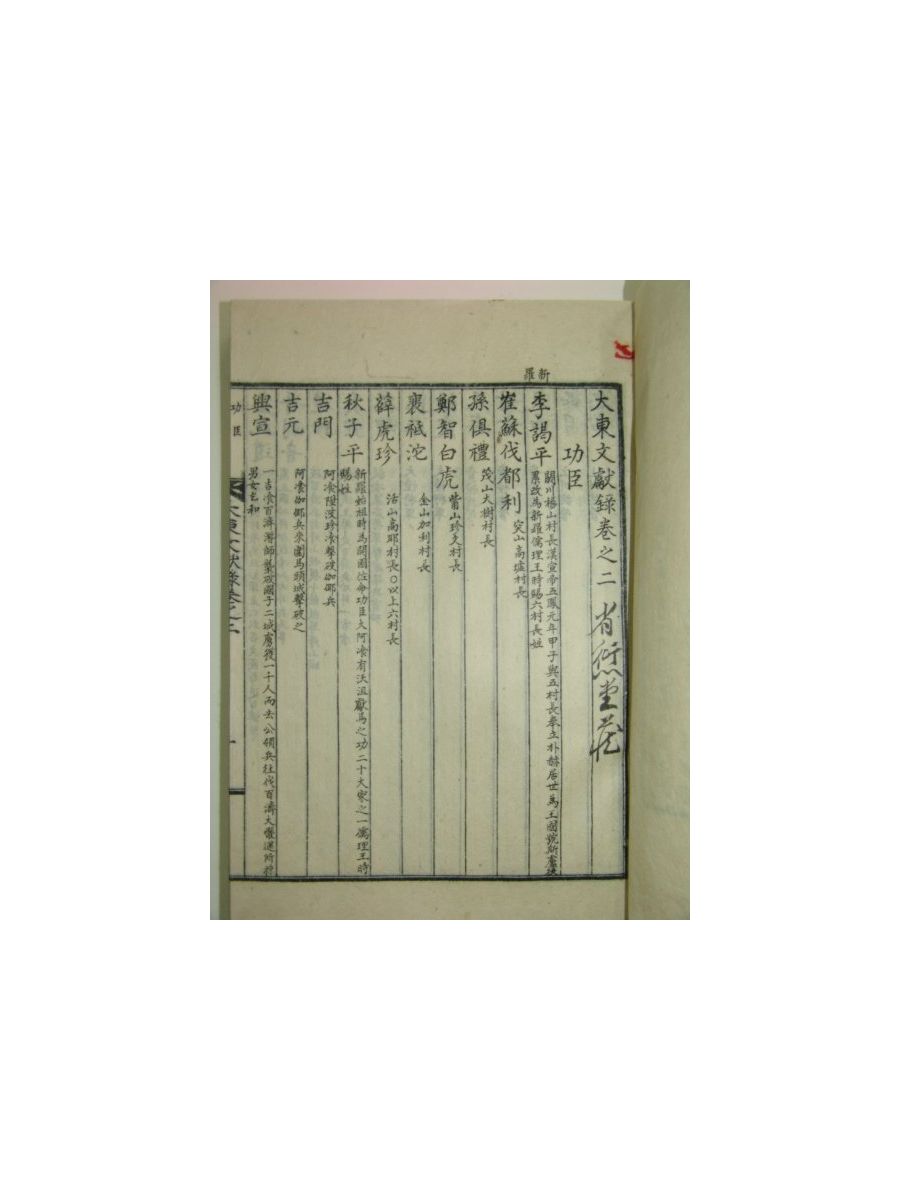 大東文獻錄卷之二
功臣
新羅
李謁平 閼川楊山村長漢宣帝五鳳元年甲子與五村長奉立朴赫居世爲王國號斯盧後
累改爲新羅儒理王時賜六村長姓
崔蘇伐都利 突山高墟村長
孫俱禮 茂山大樹村長
鄭智白虎 觜山珍支村長
裵祗沱 金山加利村長
薛虎珍 活山高耶村長○以上六村長
秋子平 新羅始祖時爲開國佐命功臣大阿飡有沃沮獻馬之功二十大家之一儒理王時
賜姓
吉門 阿飡陞波珍飡擊破伽倻兵
吉元 阿飡伽倻兵來圍馬頭城擊破之
興宣 一吉飡百濟潛師襲破國予二城虜獲一千人而去公領兵往伐百濟大懼還所擄
男女乞和
功臣
大東文獻錄卷之二
一